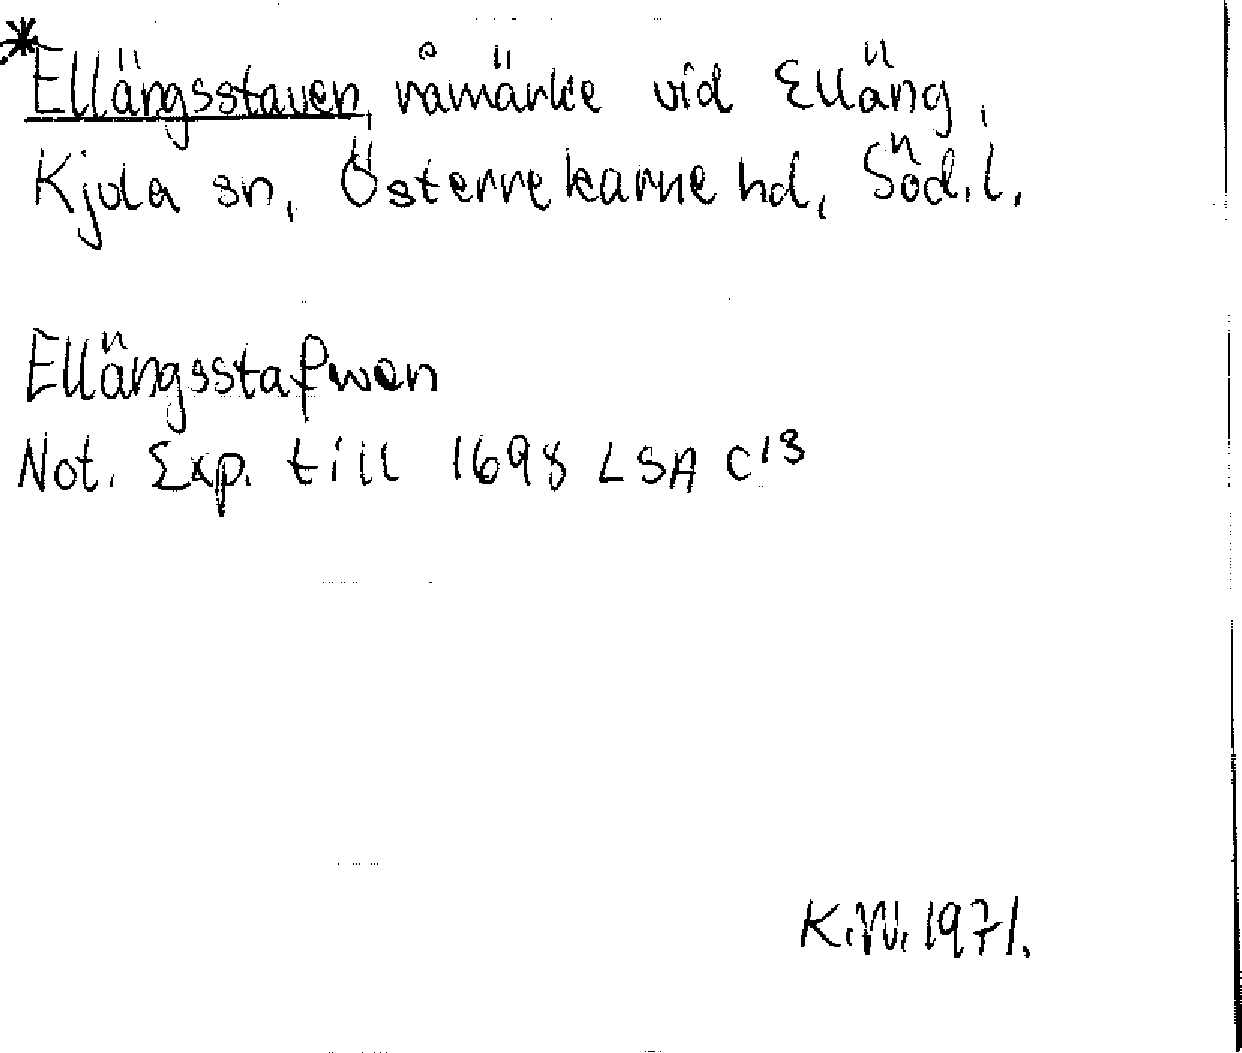 *Ellängsstaven, råmärke vid Elläng,
Kjula sn, Österrekarne hd, Söd.l.
Ellängsstafwen
Not. Exp. till 1698 LSA C13
K.W. 1971.